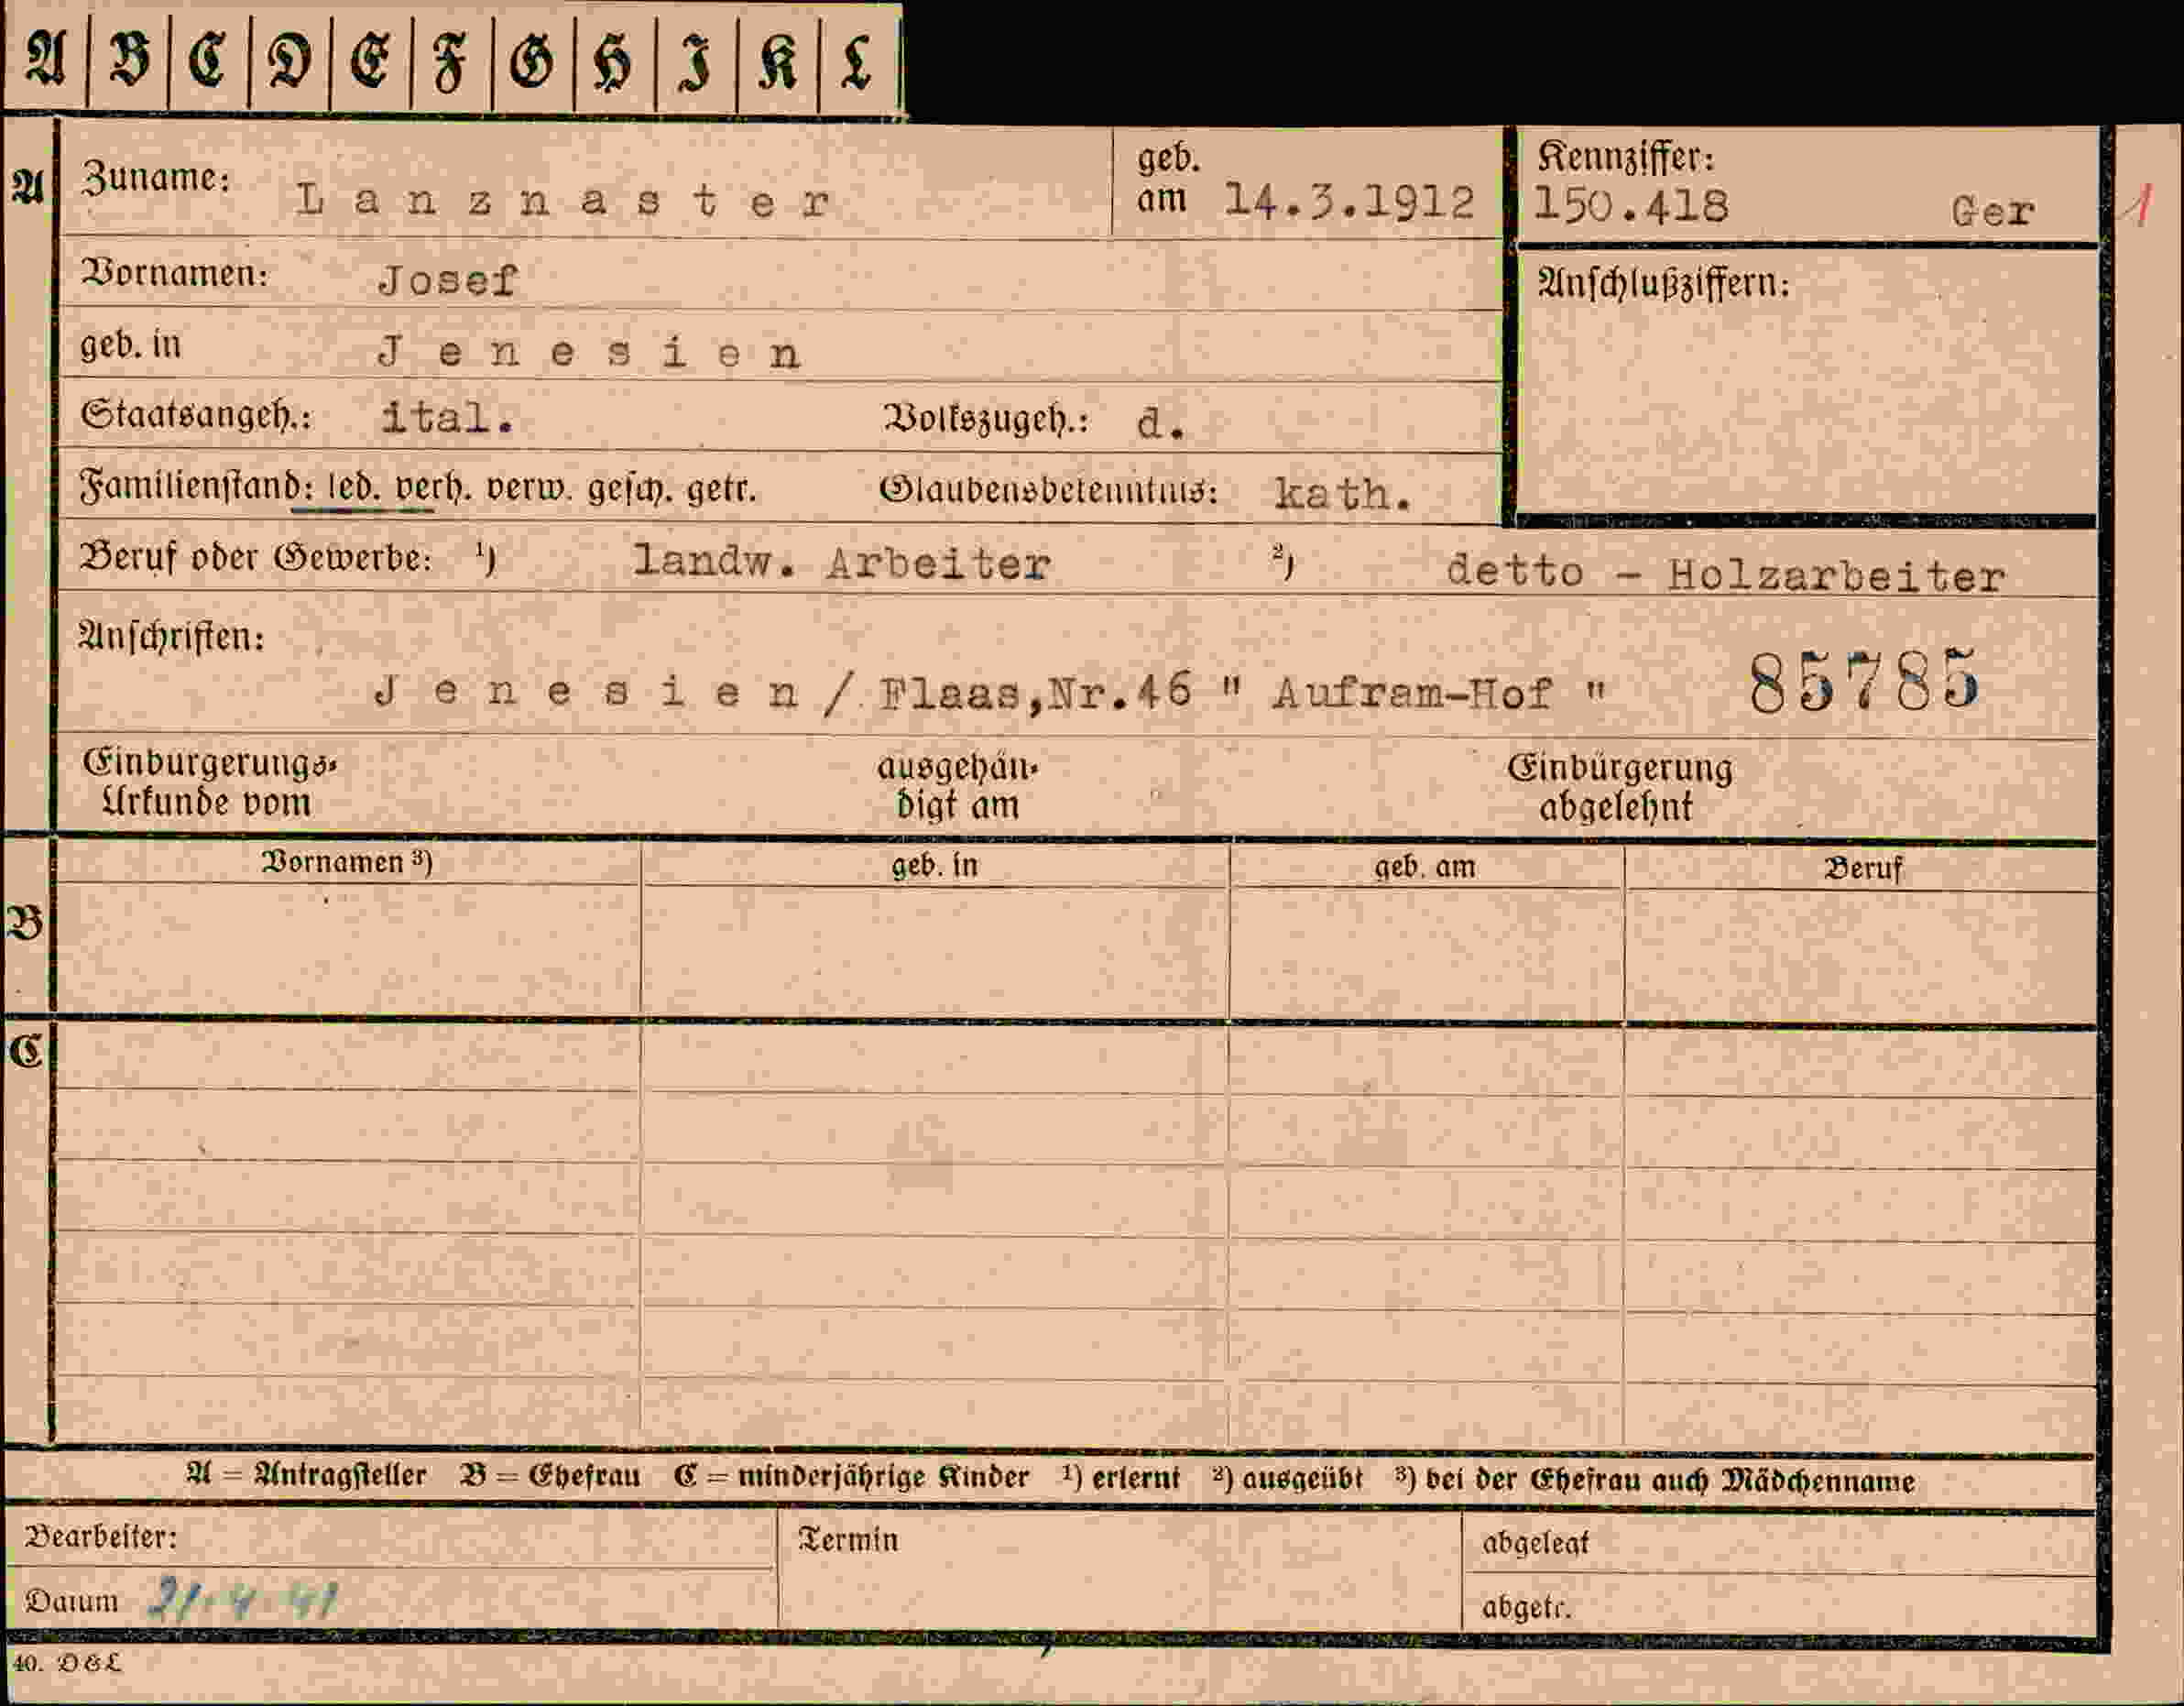 A B C D E F G H I K L
A Zuname: Lanznaster geb. am 14.3.1912 Kennziffer: 150.418 Ger 1
Vornamen: Josef Anschlußziffern:
geb. in Jenesien
Staatsangeh.: ital. Volkszugeh.: d.
Familienstand: led. verh. verw. gesch. getr. Glaubensbekenntnis: kath.
Beruf oder Gewerbe: ¹) landw. Arbeiter ²) detto - Holzarbeiter
Anschriften:
Jenesien / Flaas,Nr.46 " Aufram-Hof " 85785
Einbürgerungs- ausgehän- Einbürgerung
Urkunde vom digt am abgelehnt
Vornamen ³) geb. in geb. am Beruf
B
C
A = Antragsteller B = Ehefrau C = minderjährige Kinder ¹) erlernt ²) ausgeübt ³) bei der Ehefrau auch Mädchenname
Bearbeiter: Termin abgelegt
Datum 21.4.41 abgetr.
40. D&L